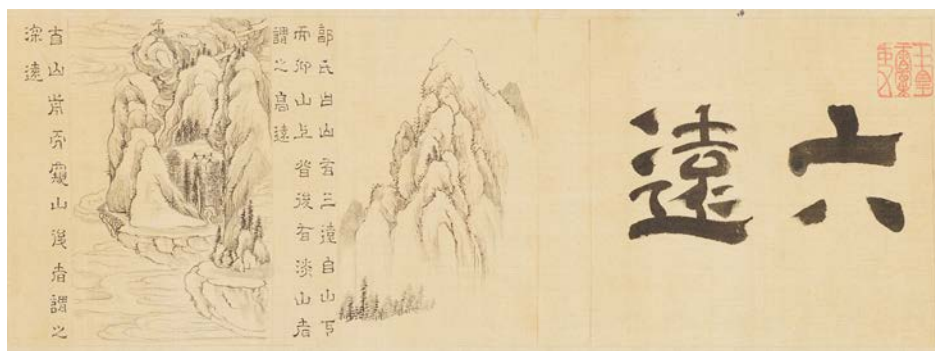 六遠
郭氏曰山有三遠自山下
而仰山上背後有淡山者
謂之高遠
自山前而窺山後者謂之
深遠